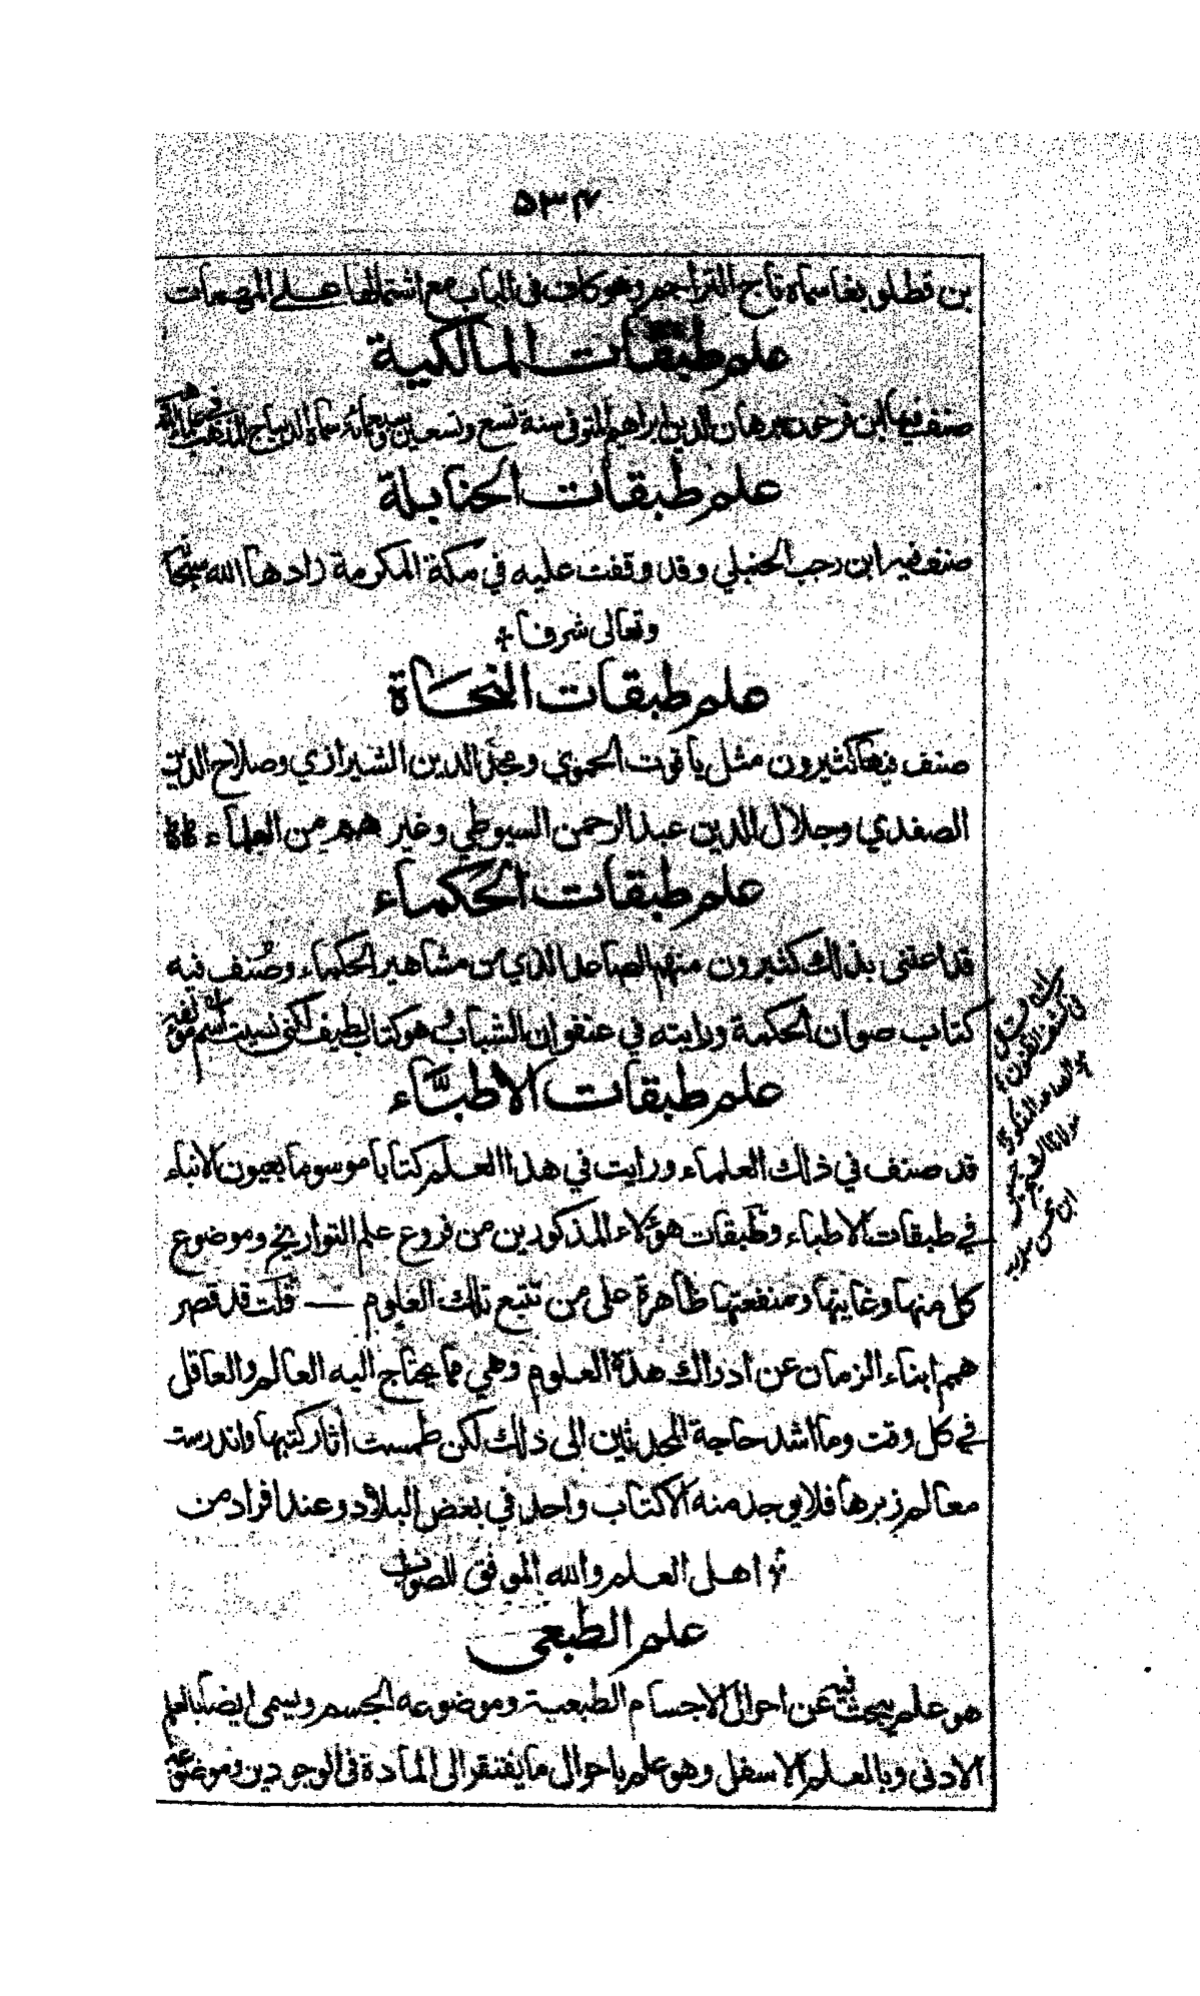 ۵۳۴
بن قطلوبغا سماه تاج التراجم وهو كاف فى الباب مع اشتمالها على المهمات
علم طبقات المالكية
صنف فيها ابن فرحون برهان الدين ابراهيم المتوفى سنة تسع وتسعين وسبعمائة سماه الديباج المذهب
علم طبقات الحنابلة
صنف فيه ابن رجب الحنبلي وقد وقفت عليه في مكة المكرمة زادها الله سبحانه
وتعالى شرفا
علم طبقات النحاة
صنف فيها كثيرون مثل ياقوت الحموي ومجد الدين الشيرازي وصلاح الدين
الصفدي وجلال الدين عبد الرحمن السيوطي وغيرهم من العلماء
علم طبقات الحكماء
قد اعتنى بذلك كثيرون منهم الصاحد الذي من مشاهير الحكماء وصنف فيه
كتاب صوان الحكمة ورايته في عنفوان الشباب وهو كتاب لطيف لكني نسيت اسم مؤلفه
علم طبقات الاطبّاء
قد صنف في ذلك العلماء ورايت في هذا العلم كتابا موسوما بعيون الانباء
في طبقات الاطباء وطبقات هؤلاء المذكورين من فروع علم التواريخ وموضوع
كل منها وغايتها ومنفعتها ظاهرة على من تتبع تلك العلوم — قلت قد قصر
همم ابناء الزمان عن ادراك هذه العلوم وهي مما يحتاج اليه العالم والعاقل
في كل وقت وما اشد حاجة المحدثين الى ذلك لكن طمست اثار كتبها واندرست
معالم زبرها فلا يوجد منه الا كتاب واحد في بعض البلاد وعند افراد من
اهل العلم والله الموفق للصواب
علم الطبعى
هو علم يبحث فيه عن احوال الاجسام الطبعية وموضوعه الجسم ويسمى ايضا بالعلم
الادنى وبالعلم الاسفل وهو علم باحوال ما يفتقر الى المادة فى الوجودين وموضوعه
في كشف الظنون